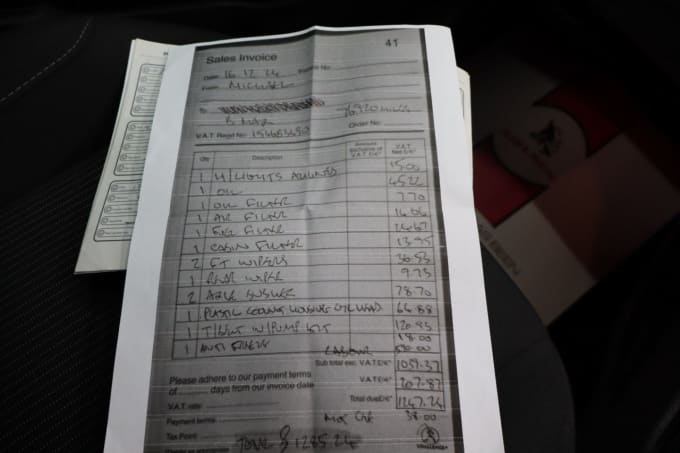 Sales Invoice 41
Date 16.12.24 Invoice No.
From MICHAEL
To
B MAX 76,920 MILES
V.A.T. Regd No. Order No.
Qty Description Amount exclusive of V.A.T. £/€* V.A.T. Net £/€*
1 H/LIGHTS ALIGNED 15.00
1 OIL 45.22
1 OIL FILTER 7.70
1 AIR FILTER 14.06
1 FUEL FILTER 24.67
1 CABIN FILTER 13.95
2 FT WIPERS 36.53
1 REAR WIPER 9.75
2 78.70
1 PLASTIC COOLANT HOUSING CYL HEAD 64.88
1 T/BELT W/PUMP KIT 120.95
1 ANTI FREEZE 18.00
LABOUR
Sub total exc. V.A.T £/€*
Please adhere to our payment terms
of days from our invoice date
V.A.T £/€* 207.87
V.A.T. rate Total due £/€* 1247.24
Payment terms MOT CAR 38.00
Tax Point
TOTAL £ 1285.24
CHALLENGE